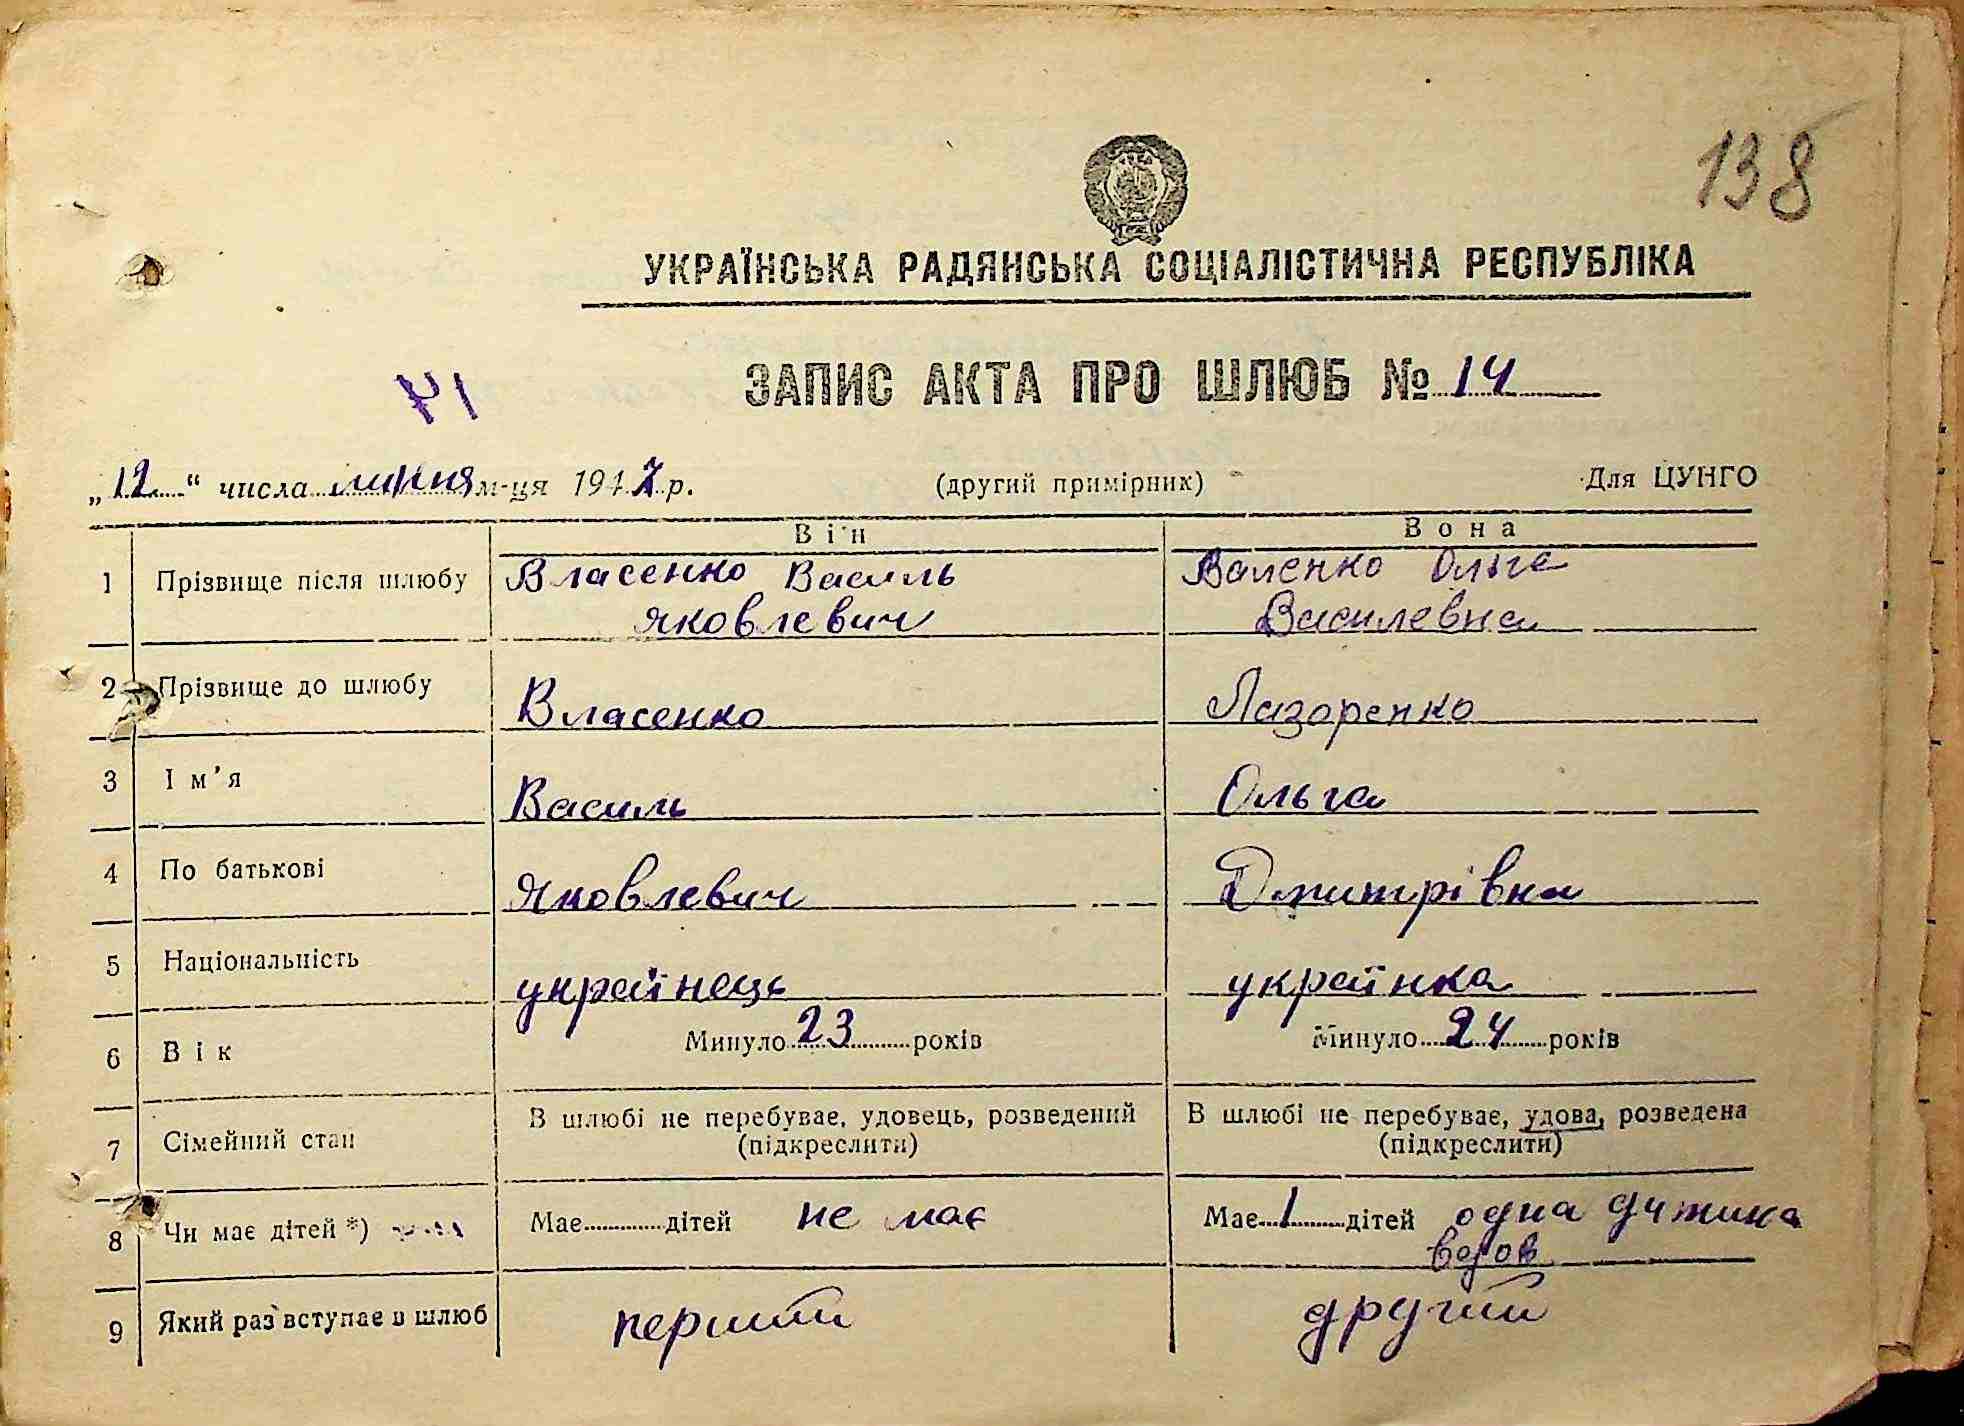 138
УКРАЇНСЬКА РАДЯНСЬКА СОЦІАЛІСТИЧНА РЕСПУБЛІКА
ЗАПИС АКТА ПРО ШЛЮБ № 14
„12“ числа липня м-ця 1947 р. (другий примірник) Для ЦУНГО
Він Вона
1 Прізвище після шлюбу Власенко Василь Валенко Ольга
Яковлевич Василевна
2 Прізвище до шлюбу Власенко Лазоренко
3 Ім’я Василь Ольга
4 По батькові Яковлевич Дмитрівна
5 Національність українець українка
6 Вік Минуло 23 років Минуло 24 років
7 Сімейний стан В шлюбі не перебуває, удовець, розведений В шлюбі не перебуває, удова, розведена
(підкреслити) (підкреслити)
8 Чи має дітей *) Має дітей не має Має 1 дітей одна дитина
9 Який раз вступає в шлюб перший другий